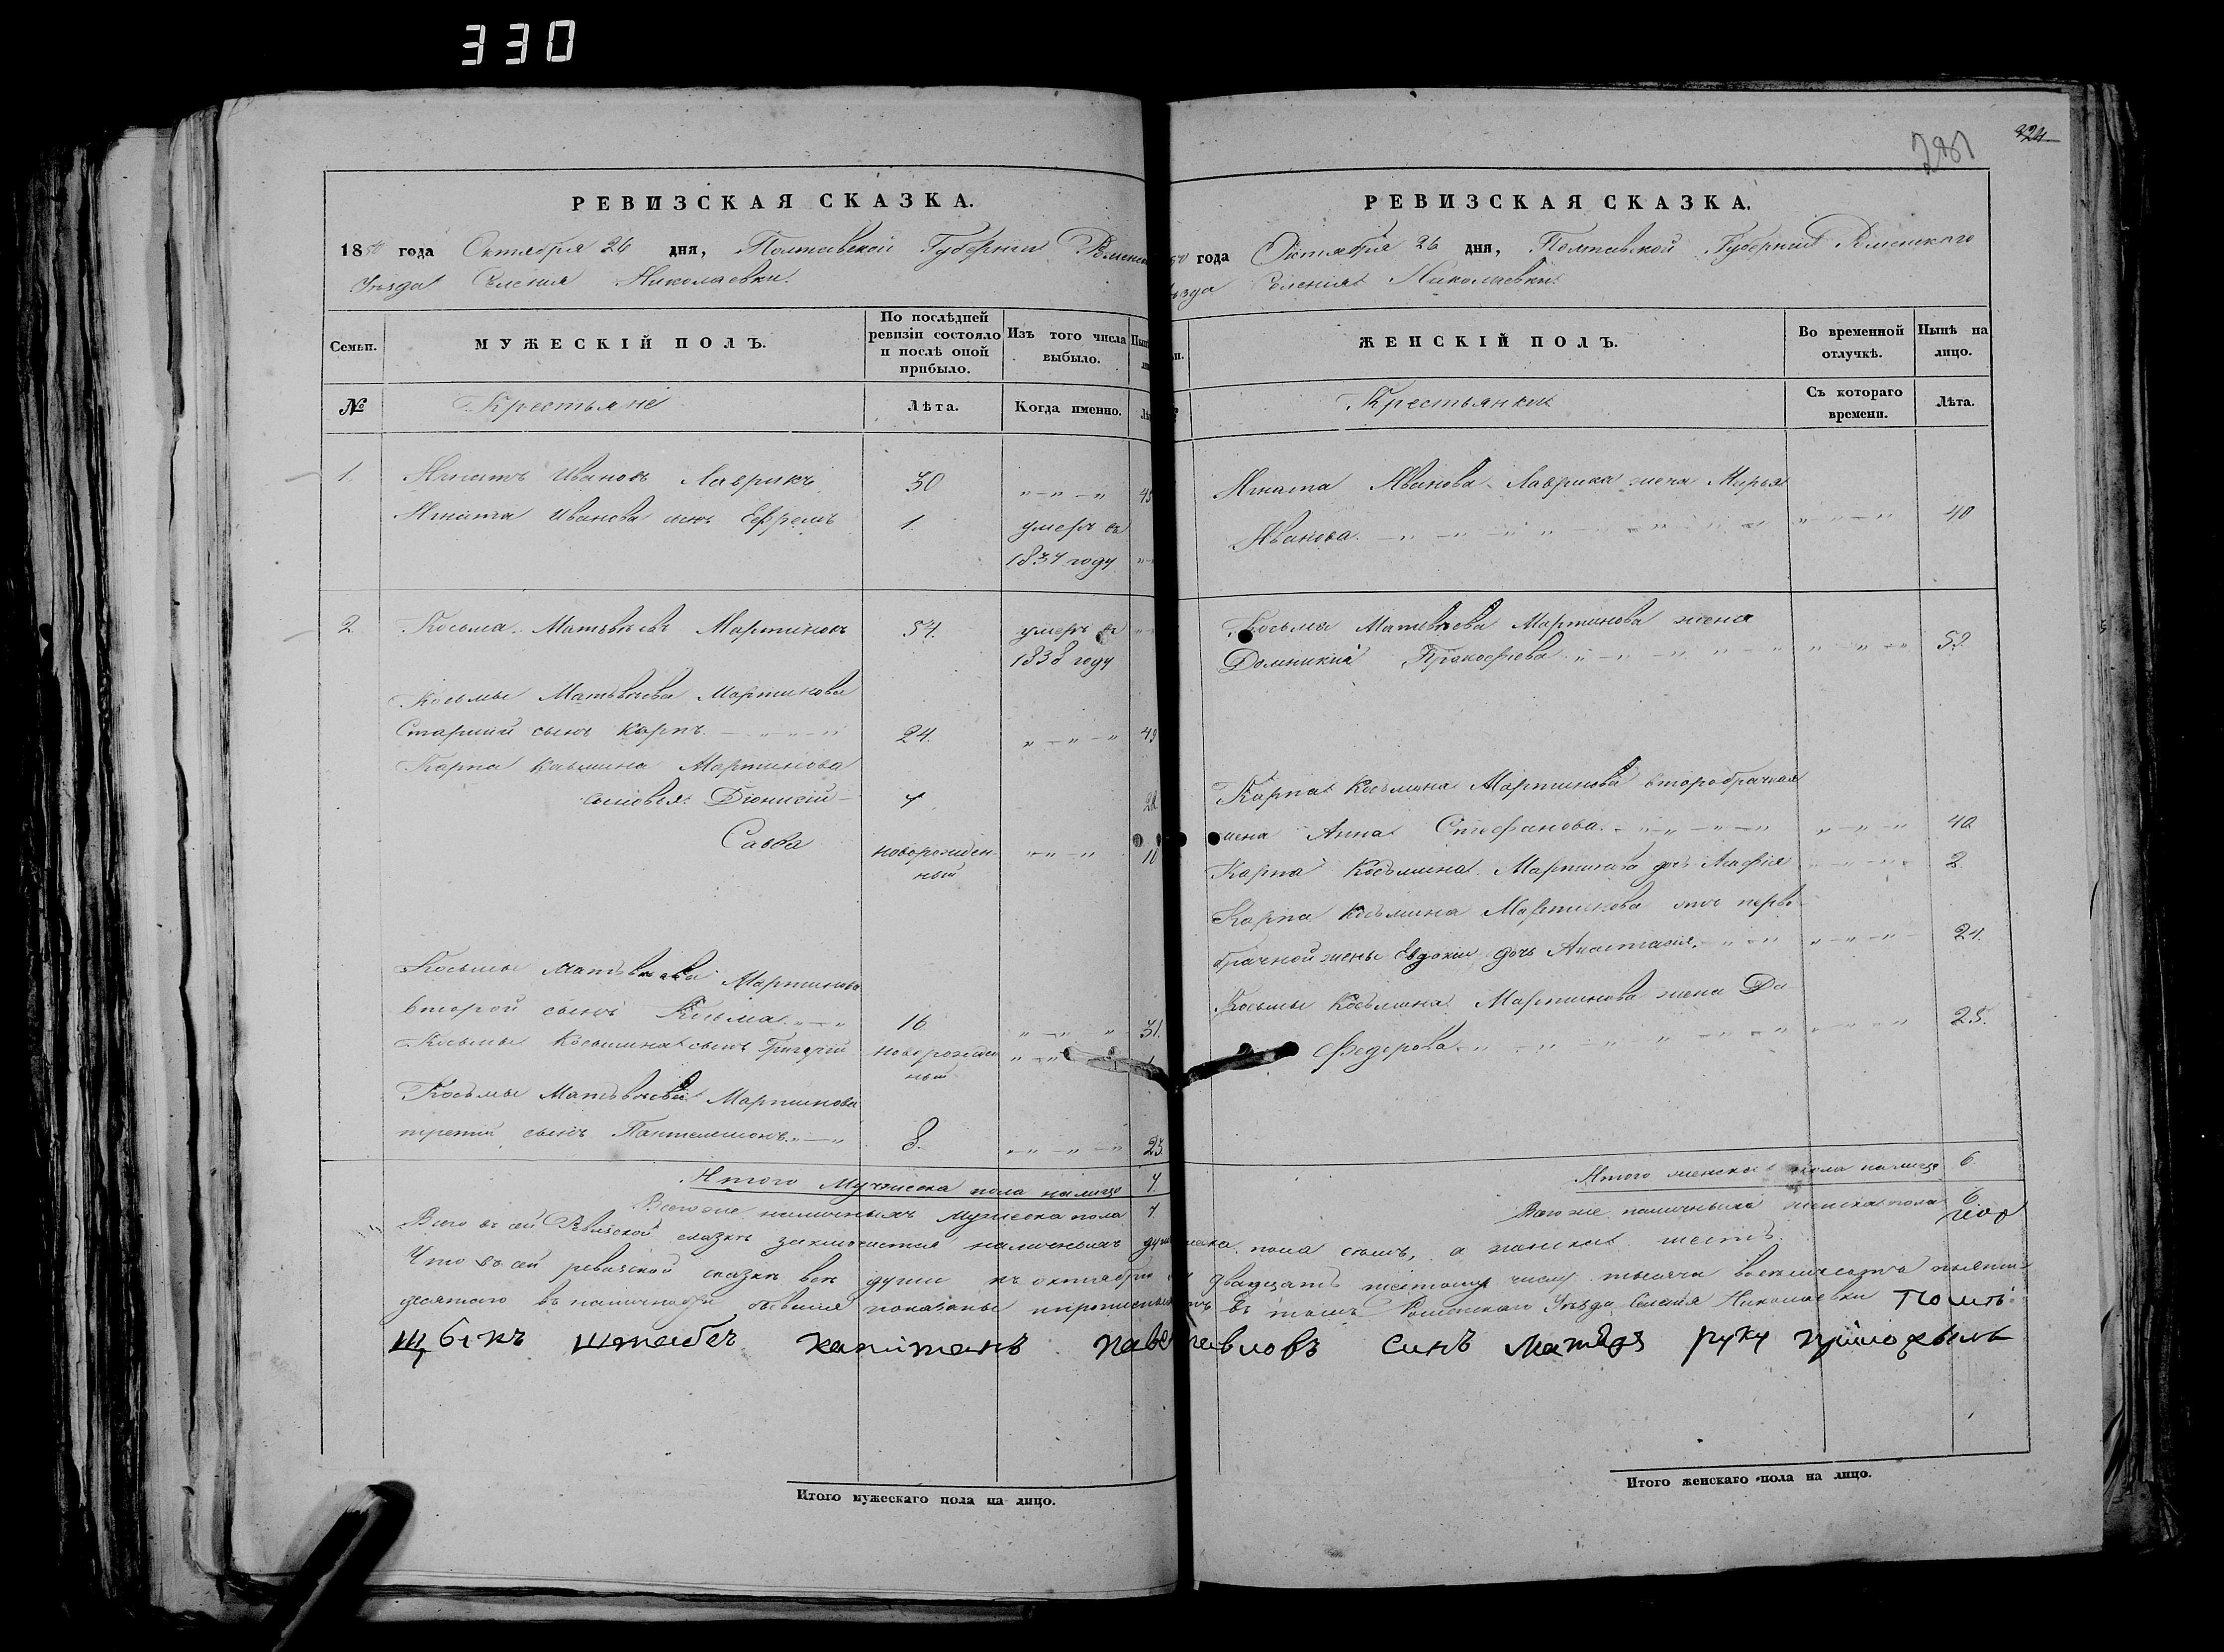 330
324
281
РЕВИЗСКАЯ СКАЗКА.
1850 года Октября 26 дня, Полтавской Губернии Роменск
Уѣзда Селения Николаевки.
Семьи.
МУЖЕСКІЙ ПОЛЪ.
По послѣдней ревизіи состояло и послѣ оной прибыло.
Изъ того числа выбыло.
№
Крестьяне
Лѣта.
Когда именно.
1. Игнатъ Ивановъ Лаврикъ 30
Игната Иванова сынъ Ефремъ 1. умеръ въ
1834 году
2 Косьма Матвѣевъ Мартинокъ 54. умеръ въ
1838 году
Косьмы Матвѣева Мартинова
Старший сынъ Карпъ. 24. 49
Карпа Косьмина Мартинова
сыновья Дионисий 7
Савва новорожден
ный
Косьмы Матвѣева Мартинова
второй сынъ Козьма 16 31.
Косьмы Косьмина сынъ Григорий новорожден
ный
Косьмы Матвѣева Мартинова
третий сынъ Пантелеимонъ 8. 23.
Итого Мужеска пола налицо 7.
Всего же наличныхъ мужеска пола 7.
РЕВИЗСКАЯ СКАЗКА.
50 года Октября 26 дня, Полтавской Губернии Роменского
ѣзда Селения Николаевки.
ЖЕНСКІЙ ПОЛЪ.
Во временной отлучкѣ.
Нынѣ на лицо.
Крестьянки
Съ котораго времени.
Лѣта.
Игната Иванова Лаврика жена Марья
Иванова. 40
Косьмы Матвѣева Мартинова жена
Домникия Прокофьева 52
Карпа Косьмина Мартинова второбрачная
жена Анна Стефанова. 40
Карпа Косьмина Мартинова дочь Агафия 2
Карпа Косьмина Мартинова отъ перво
брачной жены Евдокии дочь Анастасия. 21.
Косьмы Косьмина Мартинова жена Да
Федорова 25.
Итого женска пола налицо 6.
Всего же наличныхъ женска пола 6
Всего въ сей Ревизской сказкѣ заключается наличныхъ душ мужеска пола семь, а женска шесть.
Что въ сей ревизской сказкѣ всѣ души къ октября двадцать шестому числу тысяча восемьсотъ пятъ
десятого въ наличности бывшия показаны и прописныхъ нѣтъ въ томъ Роменскаго Уѣзда Селения Николаевки Помѣ
щикъ штабсъ капитанъ Павелъ Павловъ синъ руку приложылъ
Итого мужескаго пола на лицо.
Итого женскаго пола на лицо.